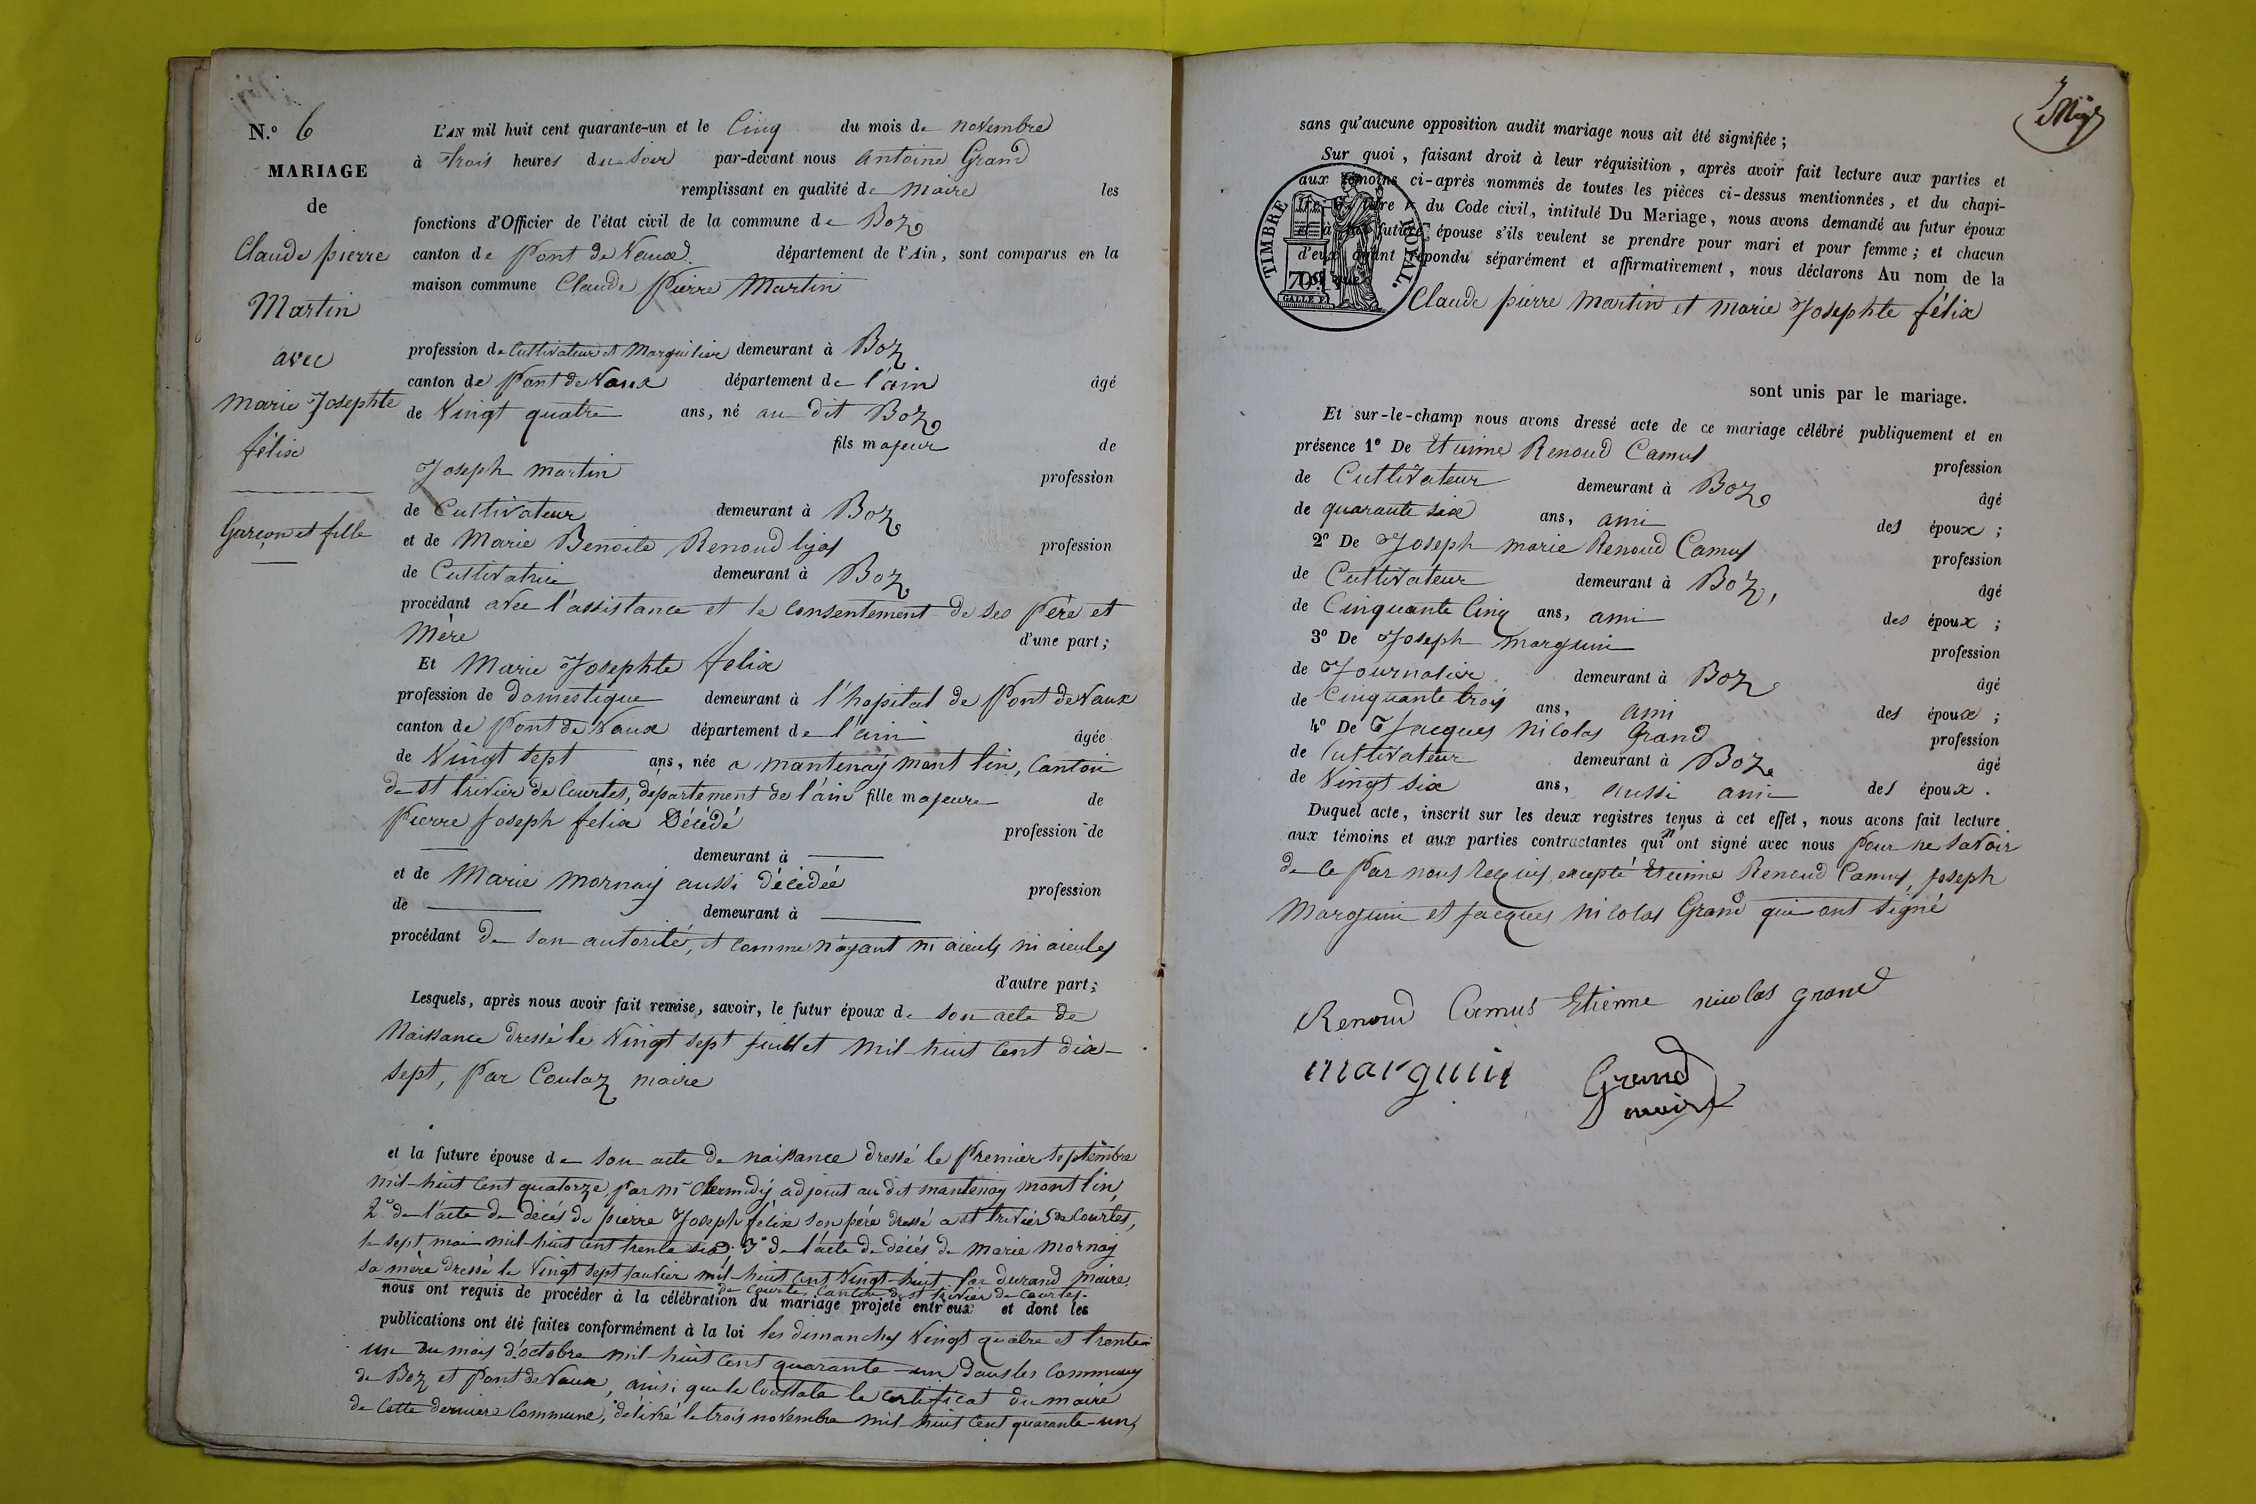 N.º 6
MARIAGE
de
Claude pierre
Martin
avec
Marie Josephte
félix
Garçon et fille
L'AN mil huit cent quarante-un et le Cinq du mois de novembre
à trois heures du soir par-devant nous antoine Grand
remplissant en qualité de Maire les
fonctions d'Officier de l'état civil de la commune de Boz
canton de Pont de Vaux. département de l'Ain, sont comparus en la
maison commune Claude Pierre Martin
profession de Cultivateur et Marguilier demeurant à Boz
canton de Pont de Vaux département de l'ain âgé
de Vingt quatre ans, né au dit Boz
fils majeur de
Joseph martin profession
de Cultivateur demeurant à Boz
et de Marie Benoite Renoud lyas profession
de Cultivatrice demeurant à Boz
procédant avec l'assistance et le consentement de ses Père et
Mère d'une part;
Et Marie Josephte félix
profession de domestique demeurant à l'hopital de Pont de Vaux
canton de Pont de Vaux département de l'ain âgée
de Vingt sept ans, née a mantenay mont lin, Canton
de st trivier de Courtes, département de l'ain fille majeure de
Pierre Joseph félix Décédé profession de
demeurant à
et de Marie Mornay aussi décédée profession
de demeurant à
procédant de son autorité, et comme n'ayant ni aieuls ni aieules
d'autre part;
Lesquels, après nous avoir fait remise, savoir, le futur époux de son acte de
Naissance dressé le Vingt sept juillet mil-huit cent dix-
sept, par Coulaz maire
et la future épouse de son acte de naissance dressé le Premier septembre
mil-huit cent quatorze, par mr adjoint au dit mantenay mont lin,
2º de l'acte de décés de pierre Joseph félix son père dressé a st trivier de Courtes,
le sept mai mil-huit cent trente six; 3º de l'acte de décés de marie Mornay
sa mère dressé le Vingt sept janvier mil-huit cent Vingt-huit par durand maire
de Courtes Canton de st trivier de Courtes.
nous ont requis de procéder à la célébration du mariage projeté entr'eux et dont les
publications ont été faites conformément à la loi les dimanches Vingt quatre et trente
un du mois d'octobre mil-huit cent quarante-un dans les communes
de Boz et Pont de Vaux, ainsi que le Constate le certificat du maire
de cette derniere commune, délivré le trois novembre mil-huit cent quarante-un,
sans qu'aucune opposition audit mariage nous ait été signifiée;
Sur quoi, faisant droit à leur réquisition, après avoir fait lecture aux parties et
aux témoins ci-après nommés de toutes les pièces ci-dessus mentionnées, et du chapi-
tre du Code civil, intitulé Du Mariage, nous avons demandé au futur époux
et à la future épouse s'ils veulent se prendre pour mari et pour femme; et chacun
d'eux ayant répondu séparément et affirmativement, nous déclarons Au nom de la
Claude pierre Martin et Marie Josephte félix
TIMBRE ROYAL.
sont unis par le mariage.
Et sur-le-champ nous avons dressé acte de ce mariage célébré publiquement et en
présence 1º De Etienne Renoud Camus profession
de Cultivateur demeurant à Boz âgé
de quarante six ans, ami des époux;
2º De Joseph marie Renoud Camus profession
de Cultivateur demeurant à Boz, âgé
de Cinquante Cinq ans, ami des époux;
3º De Joseph Marguin profession
de Journalier demeurant à Boz âgé
de Cinquante trois ans, ami des époux;
4º De Jacques Nicolas Grand profession
de Cultivateur demeurant à Boz âgé
de Vingt six ans, aussi ami des époux.
Duquel acte, inscrit sur les deux registres tenus à cet effet, nous avons fait lecture
aux témoins et aux parties contractantes qui n'ont signé avec nous Pour ne savoir
de ce Par nous requis, excepté Etienne Renoud Camus, Joseph
Marguin et Jacques Nicolas Grand qui ont signé
Renoud Camus Etienne nicolas grand
marguin Grand
maire